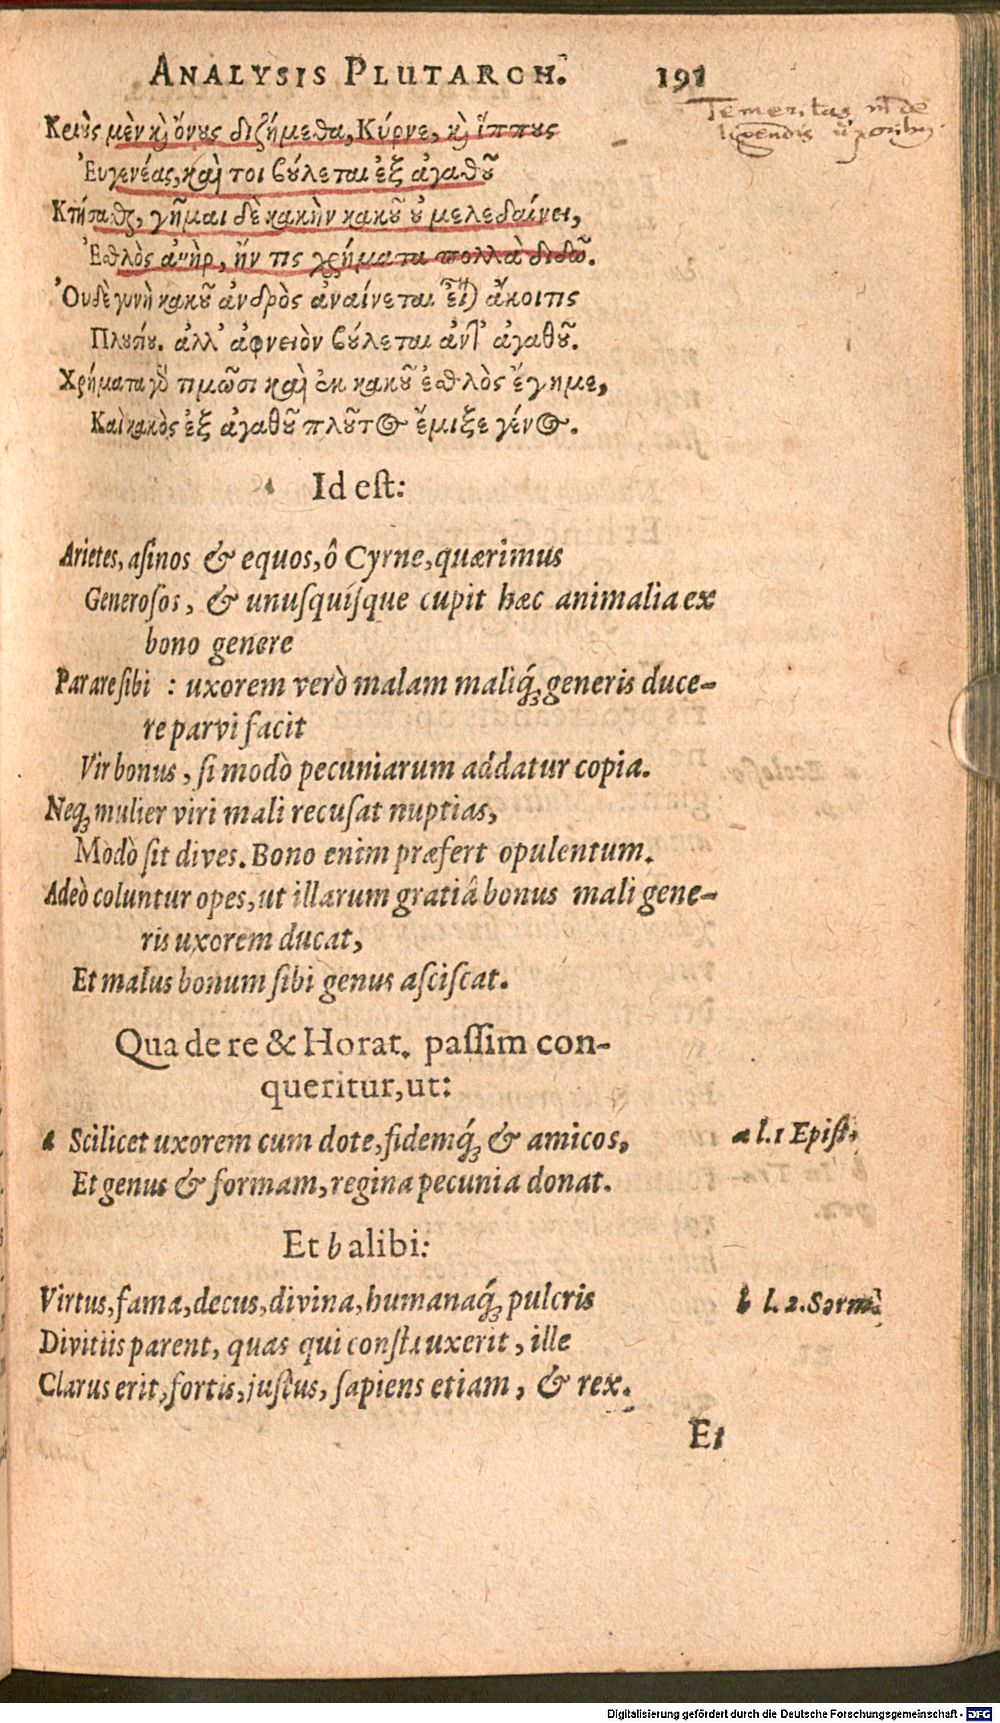 ANALYSIS PLUTARCH. 191
Temeritas
Κριὸς μὲν κὶ ὄνȣς διζήμεθα, Κύρνε, κὶ ἵππȣς
Ἐυγενέας, καὶ τοι βȣ́λεται ἐξ ἀγαθȣ͂
Κτήσαθζ, γῆμαι δὲ κακὴν κακȣ͂ ȣ̓ μελεδαίνει,
Ἐσθλὸς ἀνὴρ, ἤν τις χρήματα πολλὰ διδῶ.
Ὀυδὲ γυνὴ κακȣ͂ ἀνδρὸς ἀναίνεται εἶ) ἄκοιτις
Πλȣσίȣ. ἀλλ' ἀφνειὸν βȣ́λεται ἀντ' ἀγαθȣ͂.
Χρήματα γὸ τιμῶσι καὶ ἐκ κακȣ͂ ἐσθλὸς ἔγημε,
Καὶ κακὸς ἐξ ἀγαθȣ͂ πλȣ͂τος ἔμιξε γένος.
Id eſt:
Arietes, aſinos & equos, ô Cyrne, quærimus
Generoſos, & unuſquiſque cupit hæc animalia ex
bono genere
Parare ſibi : uxorem verò malam maliq́; generis duce-
re parvi facit
Vir bonus, ſi modò pecuniarum addatur copia.
Neq; mulier viri mali recuſat nuptias,
Modò ſit dives. Bono enim præfert opulentum.
Adeò coluntur opes, ut illarum gratiâ bonus mali gene-
ris uxorem ducat,
Et malus bonum ſibi genus aſciſcat.
Qua de re & Horat. paſſim con-
queritur, ut:
a Scilicet uxorem cum dote, fidemq́; & amicos, a l. 1 Epiſt.
Et genus & formam, regina pecunia donat.
Et b alibi:
Virtus, fama, decus, divina, humanaq́; pulcris b l. 2. Serm.
Divitiis parent, quas qui conſtruxerit, ille
Clarus erit, fortis, juſtus, ſapiens etiam, & rex.
Et
Digitalisierung gefördert durch die Deutsche Forschungsgemeinschaft - DFG